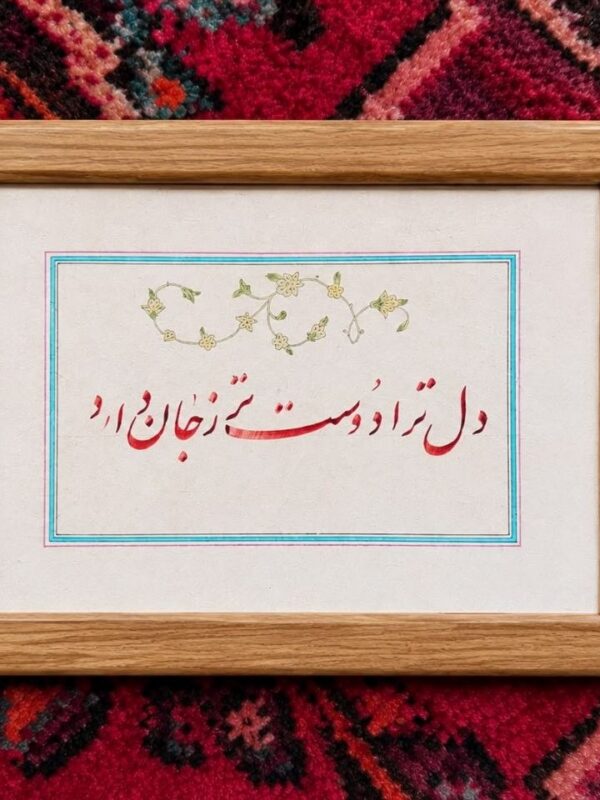 دل ترا دوست‌تر ز جان دارد